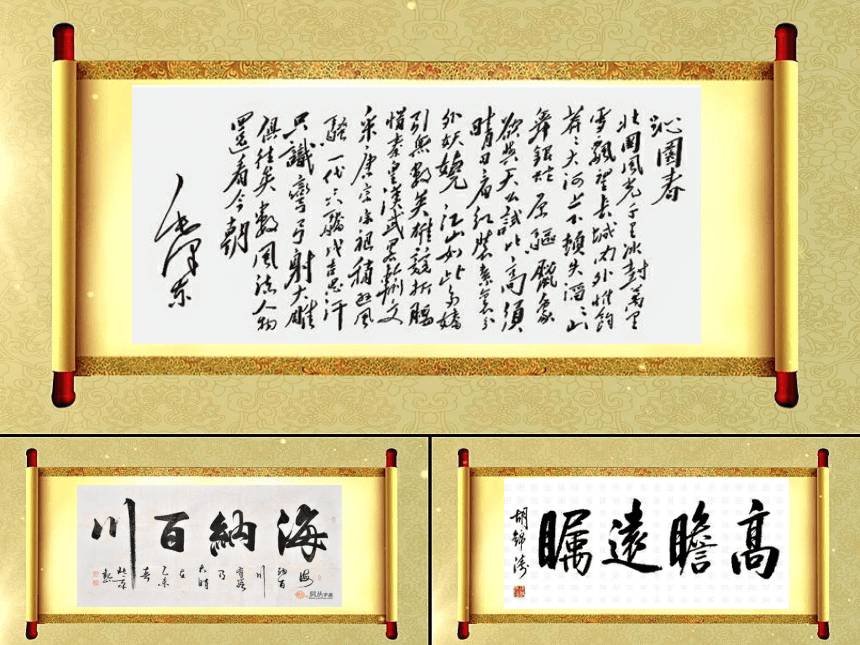 沁園春
北國風光千里冰封萬里
雪飄望長城內外惟餘
莽〻大河上下頓失滔〻山
舞銀蛇原驅臘象
欲與天公試比高須
晴日看紅裝素裹分
外妖嬈江山如此多嬌
引無數英雄競折腰
惜秦皇漢武略輸文
采唐宗宋祖稍遜風
騷一代天驕成吉思汗
只識彎弓射大雕
俱往矣數風流人物
還看今朝
毛澤東
海納百川
海
納百
川
有容
乃
大時
在
乙未
春
北京
字画
高瞻遠矚
胡錦濤